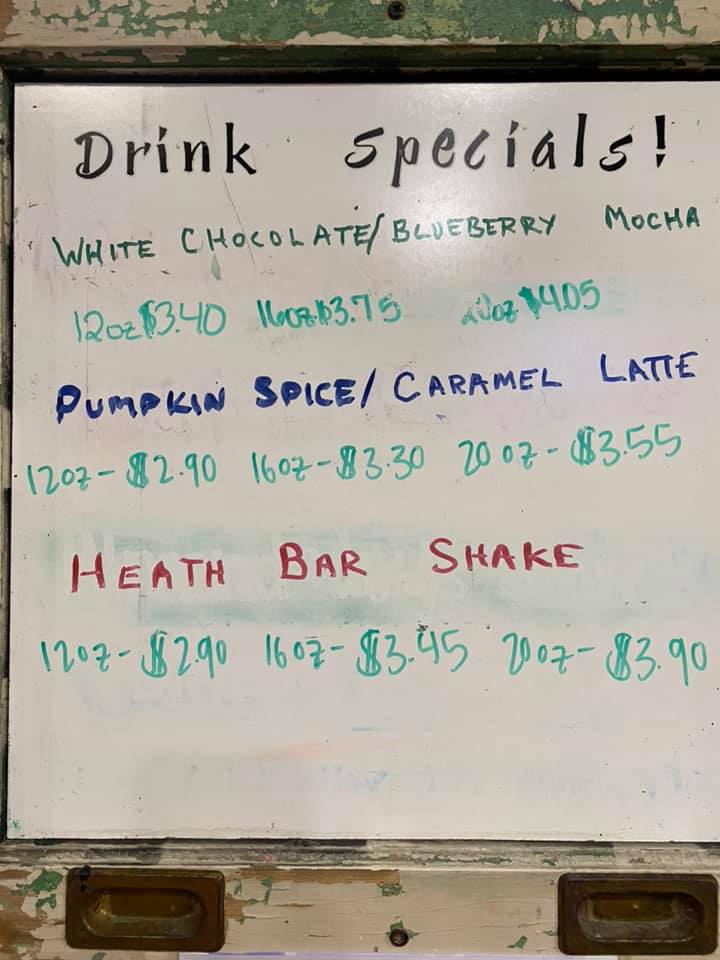 Drink Specials!
WHITE CHOCOLATE/BLUEBERRY MOCHA
12oz $3.40 16oz $3.75 20oz $4.05
PUMPKIN SPICE/CARAMEL LATTE
12oz - $2.90 16oz - $3.30 20oz - $3.55
HEATH BAR SHAKE
12oz - $2.90 16oz - $3.45 20oz - $3.90